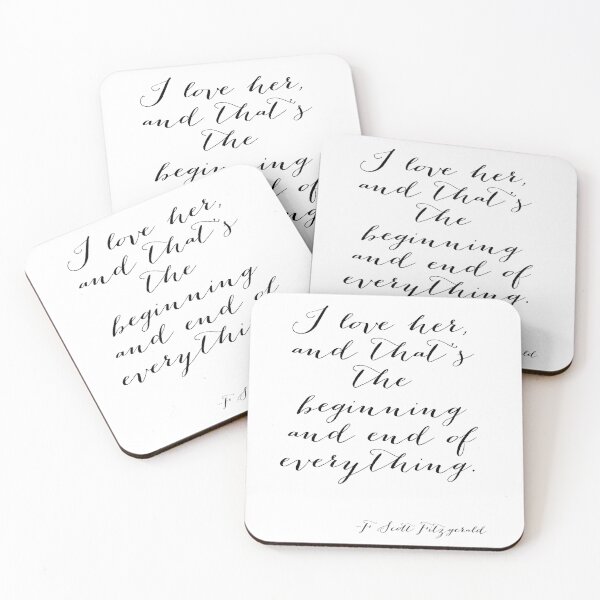 I love her,
and that's
the
beginning
of
I love her,
and that's
the
beginning
and end of
everything.
I love her,
and that's
the
beginning
and end of
I love her,
and that's
the
beginning
and end of
everything.
F. Scott Fitzgerald